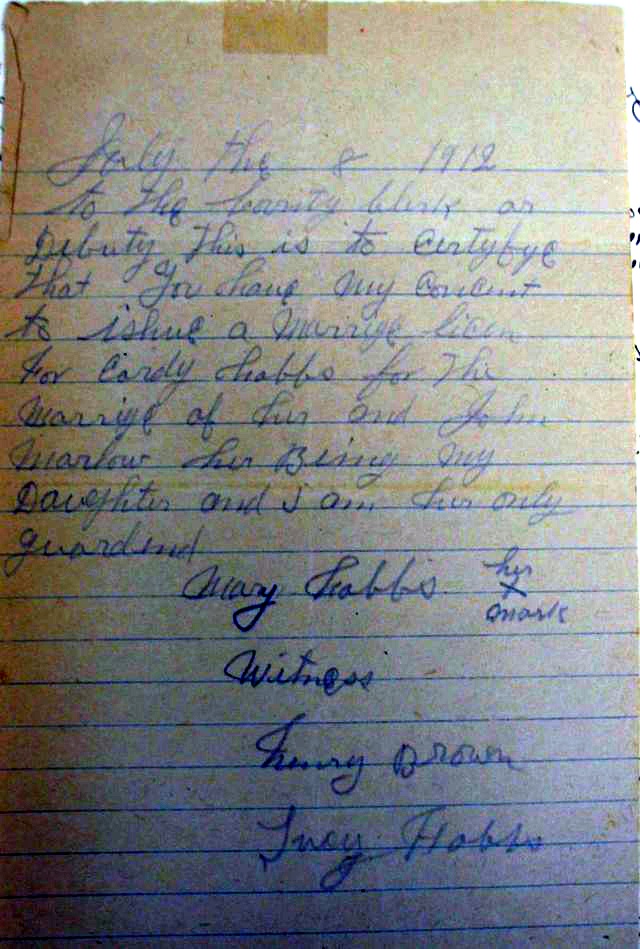 July the 8 1912
to the County Clerk or
Debuty this is to certyfye
that you have my concent
to ishue a Marrige licen
For Cardy Hobbs for the
Marrige of her and John
Marlow her Being My
Daughter and I am her only
guardend
Mary Hobbs her
X
mark
Witness
Henry Brown
Hobbs